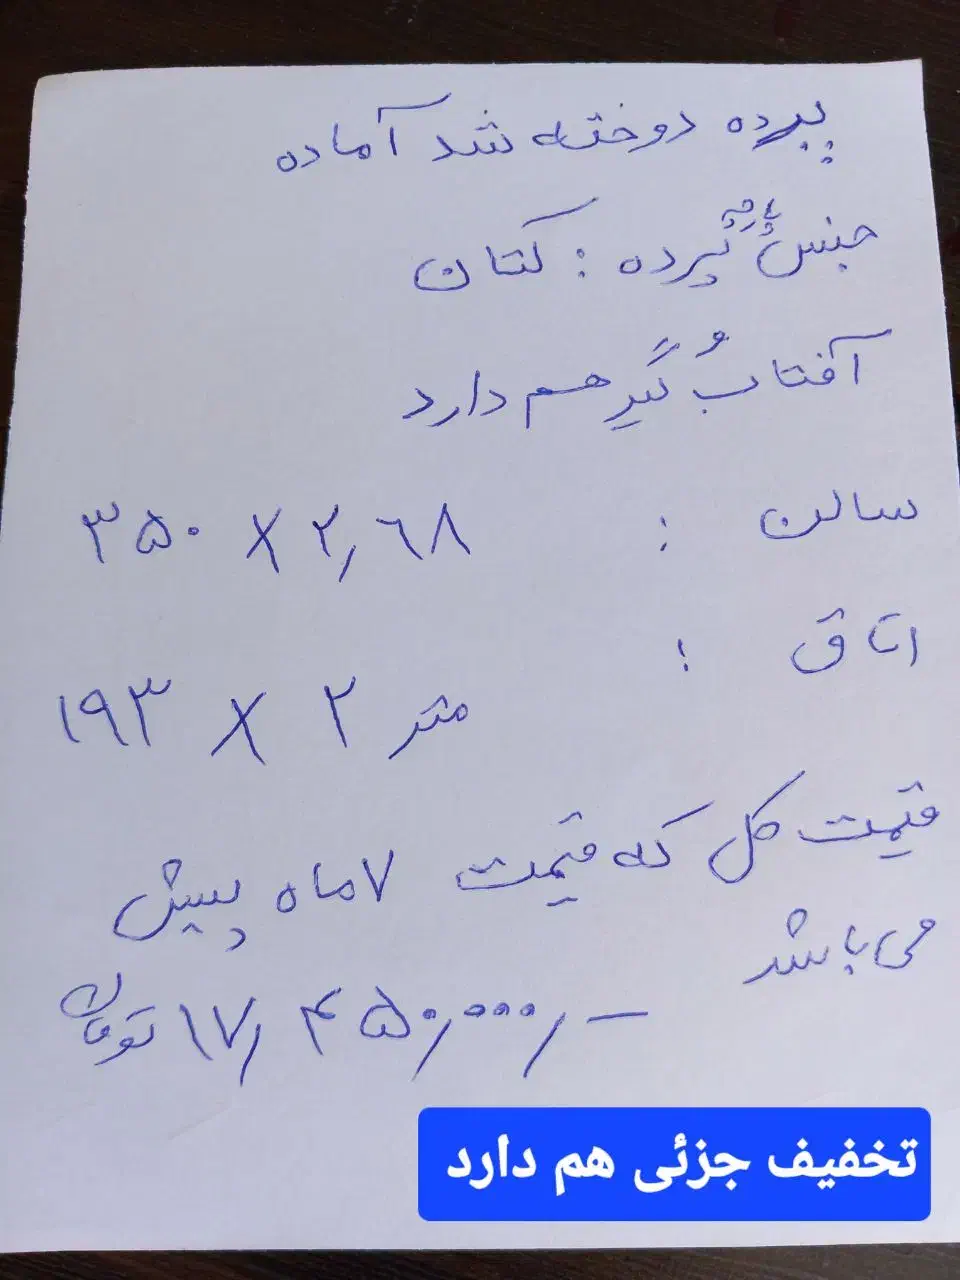 پرده دوخته شد آماده
جنس پارچه پرده : کتان
آفتاب گیر هم دارد
سالن : ۳۵۰ X ۲,۶۸
اتاق : ۱۹۳ X ۲ متر
قیمت کل که قیمت ۷ ماه پیش
می باشد
۱۷,۴۵۰,۰۰۰,- تومان
تخفیف جزئی هم دارد